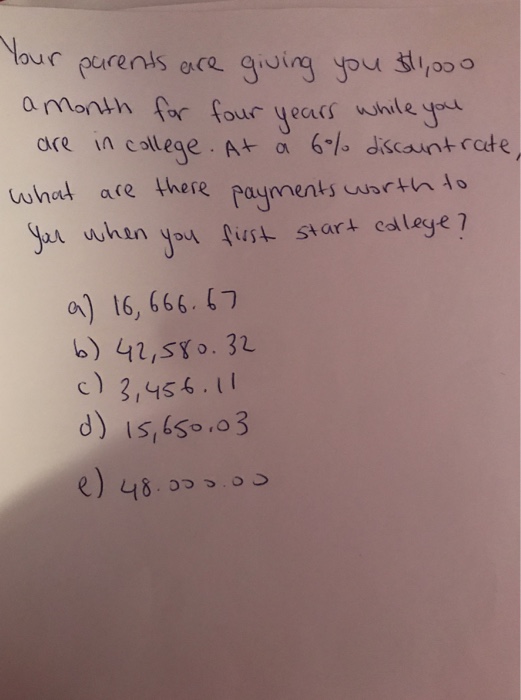 Your parents are giving you $1,000
a month for four years while you
are in college. At a 6% discount rate,
what are there payments worth to
you when you first start college?
a) 16,666.67
b) 42,580.32
c) 3,456.11
d) 15,650.03
e) 48.000.00